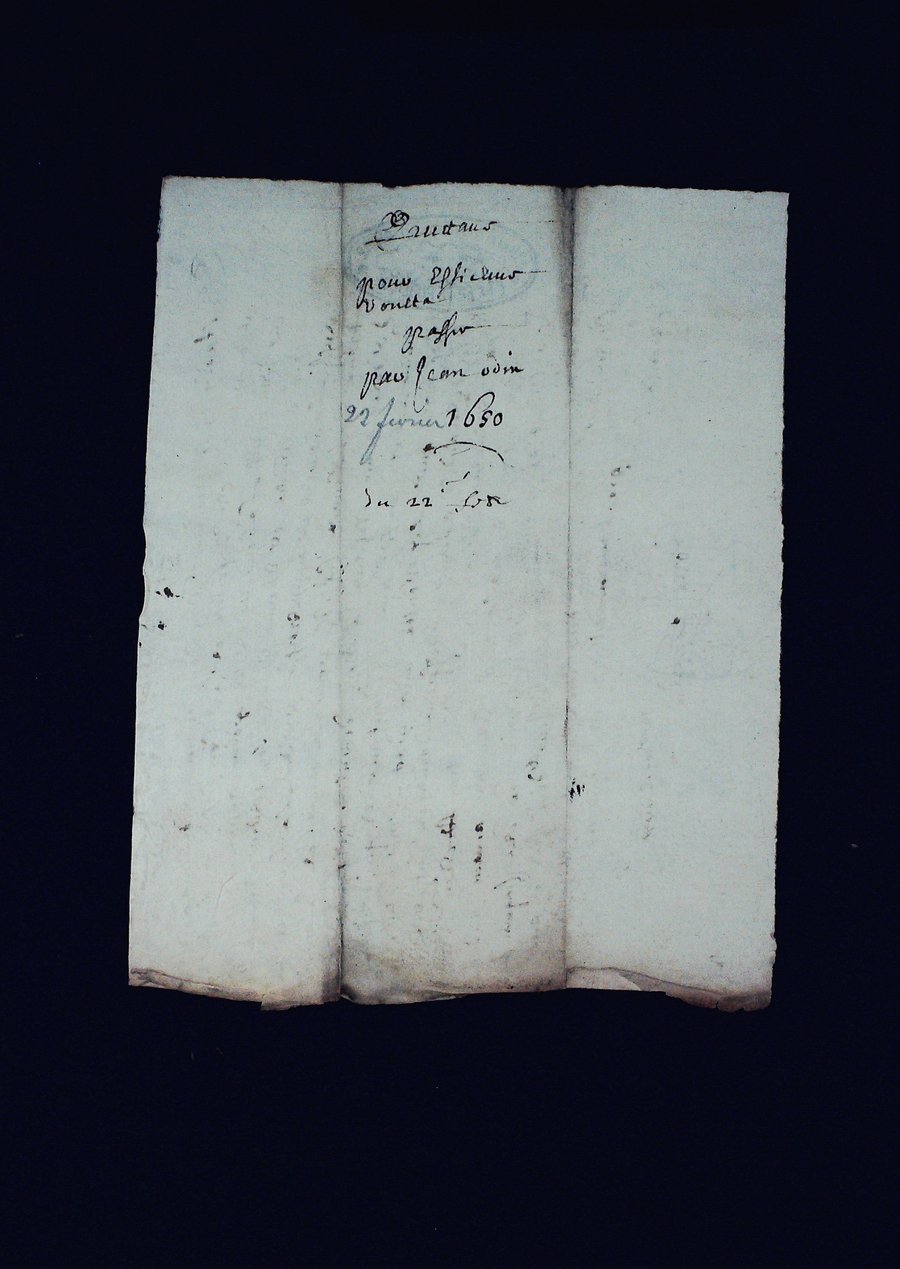 Quittance
pour Estienne
Voulta
passée
par Jean odin
22 février 1650
du 22